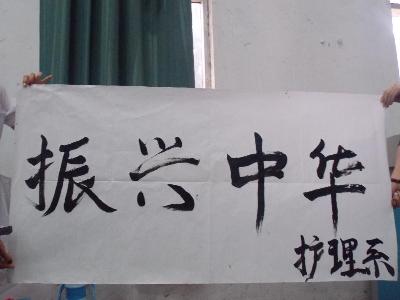 振兴中华
护理系